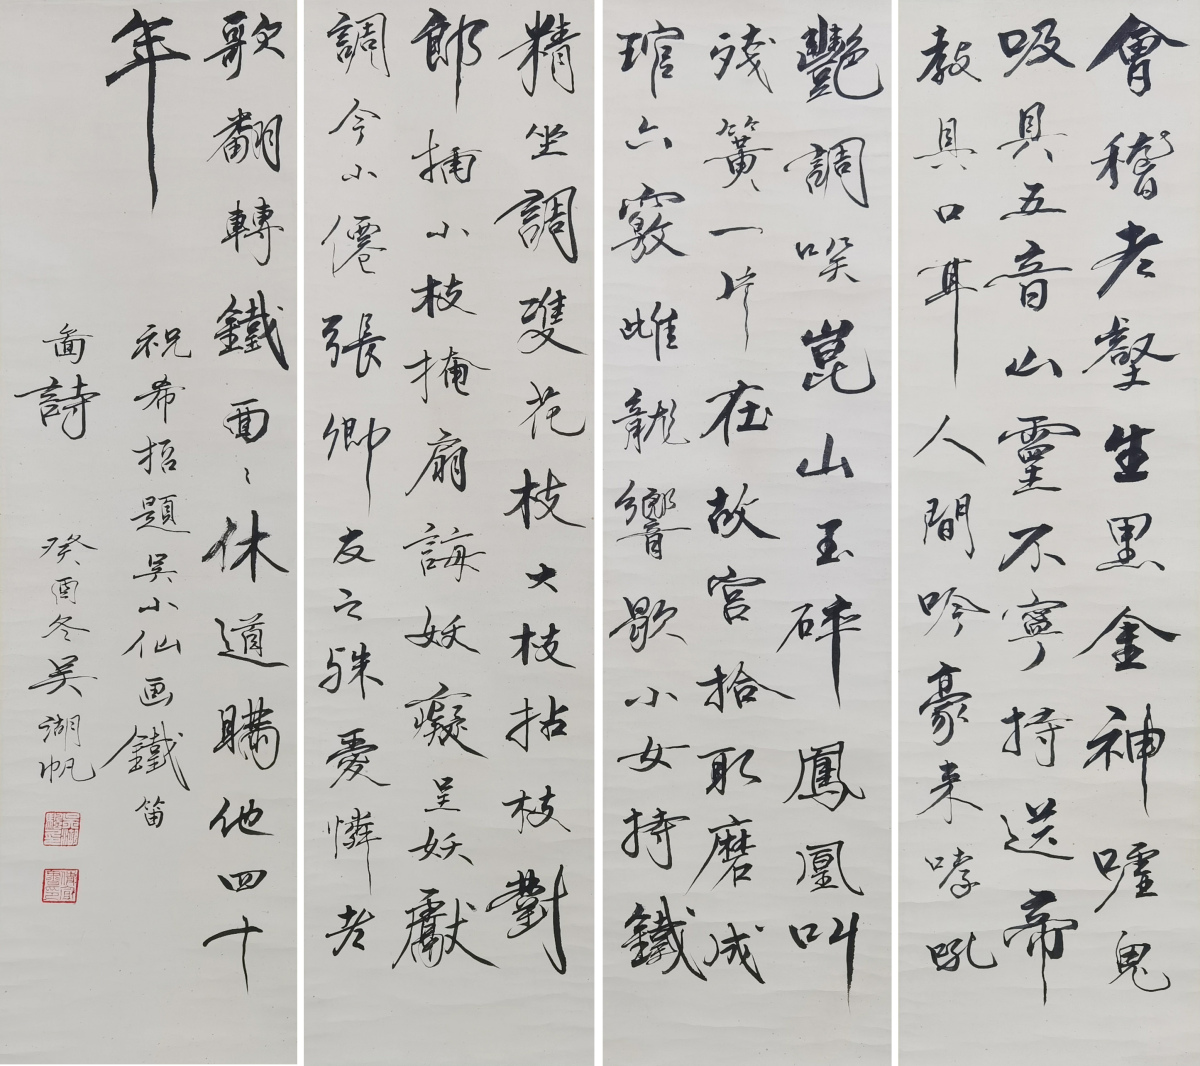 會稽老壑生黑金神嘘鬼
吸具五音山靈不寧持送帝
教具口耳人間吟豪来嘹吼
豔調喫崑山玉碎鳳凰叫
殘簧一片在故宮拾取磨成
琯六竅雌龍響歇小女持鐵
精坐調雙花枝大枝拈枝對
郎插小枝掩扇誨妖癡呈妖獻
調今小僊張卿友之殊憂憐老
歌翻轉鐵面〻休道購他四十
年
祝希招題吳小仙画鐵笛
啚詩
癸酉冬吳湖帆